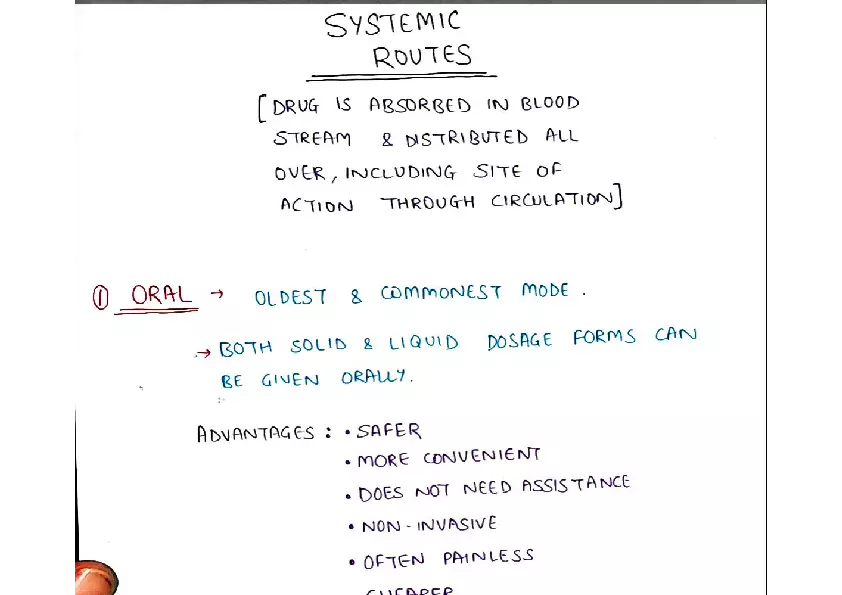 SYSTEMIC
ROUTES
[DRUG IS ABSORBED IN BLOOD
STREAM & DISTRIBUTED ALL
OVER, INCLUDING SITE OF
ACTION THROUGH CIRCULATION]
① ORAL → OLDEST & COMMONEST MODE.
→ BOTH SOLID & LIQUID DOSAGE FORMS CAN
BE GIVEN ORALLY.
ADVANTAGES : • SAFER
• MORE CONVENIENT
• DOES NOT NEED ASSISTANCE
• NON-INVASIVE
• OFTEN PAINLESS
CHEAPER